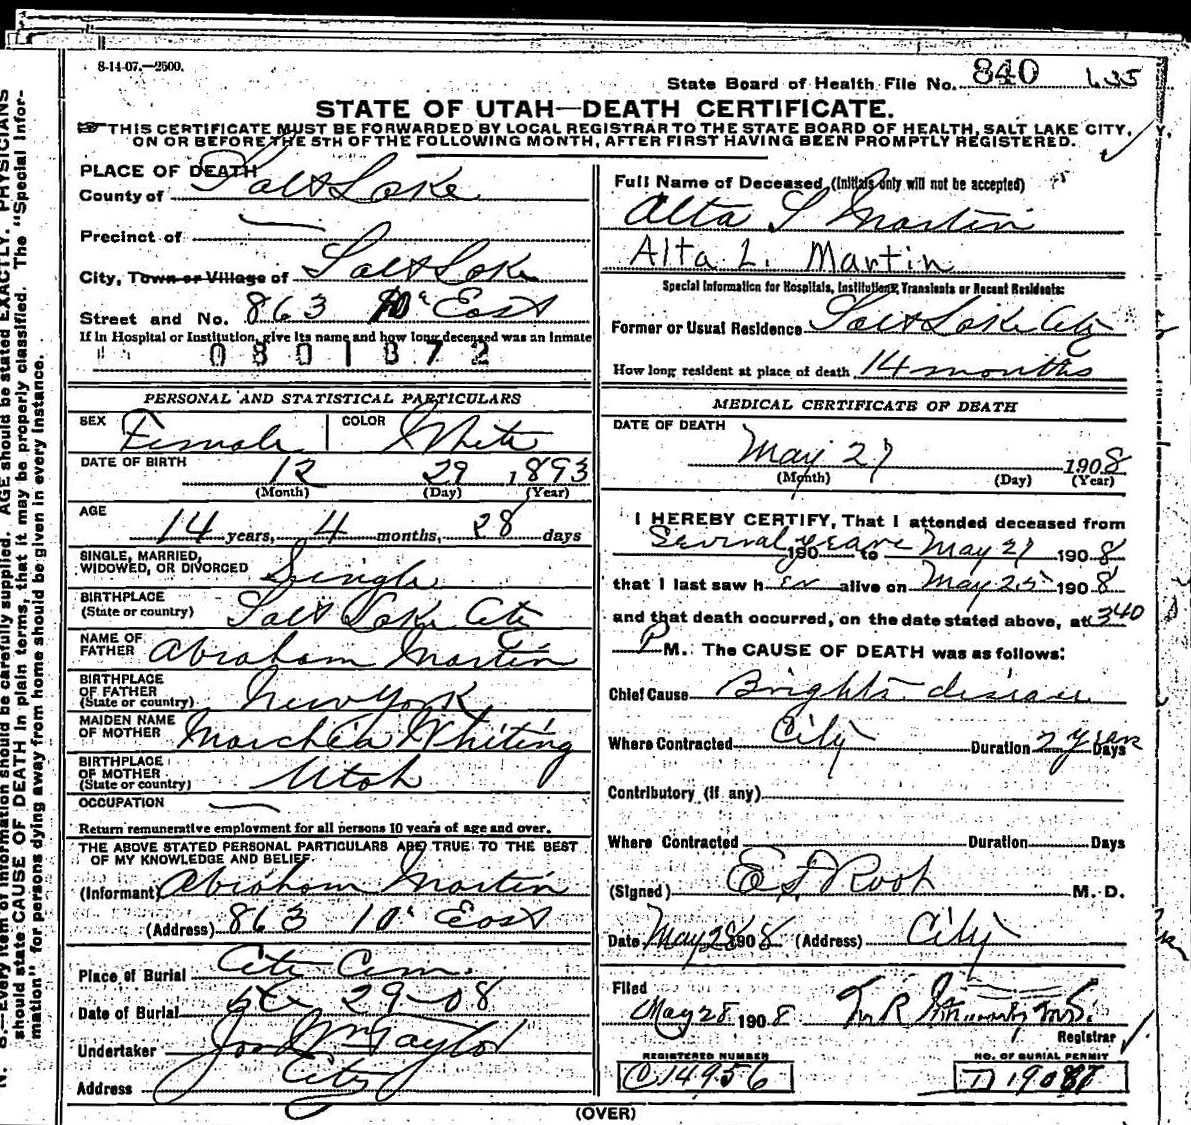 8-14-07.—2500.
State Board of Health File No. 840
STATE OF UTAH—DEATH CERTIFICATE.
THIS CERTIFICATE MUST BE FORWARDED BY LOCAL REGISTRAR TO THE STATE BOARD OF HEALTH, SALT LAKE CITY,
ON OR BEFORE THE 5TH OF THE FOLLOWING MONTH, AFTER FIRST HAVING BEEN PROMPTLY REGISTERED.
PLACE OF DEATH
County of Salt Lake
Precinct of —
City, Town or Village of Salt Lake
Street and No. 863 10" East
If in Hospital or Institution, give its name and how long deceased was an inmate
0801872
PERSONAL AND STATISTICAL PARTICULARS
SEX Female COLOR White
DATE OF BIRTH 12 29 1893
(Month) (Day) (Year)
AGE
14 years, 4 months, 28 days
SINGLE, MARRIED,
WIDOWED, OR DIVORCED Single
BIRTHPLACE
(State or country) Salt Lake City
NAME OF
FATHER Abraham Martin
BIRTHPLACE
OF FATHER
(State or country) New York
MAIDEN NAME
OF MOTHER Whiting
BIRTHPLACE
OF MOTHER
(State or country) Utah
OCCUPATION —
Return remunerative employment for all persons 10 years of age and over.
THE ABOVE STATED PERSONAL PARTICULARS ARE TRUE TO THE BEST
OF MY KNOWLEDGE AND BELIEF.
(Informant) Abraham Martin
(Address) 863 10" East
Place of Burial City Cem.
Date of Burial 29-08
Undertaker Taylor
Address City
Full Name of Deceased (Initials only will not be accepted)
Alta L Martin
Alta L. Martin
Special Information for Hospitals, Institutions, Transients or Recent Residents:
Former or Usual Residence Salt Lake City
How long resident at place of death 14 months
MEDICAL CERTIFICATE OF DEATH
DATE OF DEATH
May 27 1908
(Month) (Day) (Year)
I HEREBY CERTIFY, That I attended deceased from
Several years 190 to May 27 1908
that I last saw her alive on May 25 1908
and that death occurred, on the date stated above, at 340
P M. The CAUSE OF DEATH was as follows:
Chief Cause Brights disease
Where Contracted City Duration 2 years Days
Contributory (if any)
Where Contracted Duration Days
(Signed) M. D.
Date May 28 1908 (Address) City
Filed
May 28 1908
Registrar
REGISTERED NUMBER
C14956
NO. OF BURIAL PERMIT
(OVER)
N. B.—Every item of information should be carefully supplied. AGE should be stated EXACTLY. PHYSICIANS
should state CAUSE OF DEATH in plain terms, that it may be properly classified. The "Special Infor-
mation" for persons dying away from home should be given in every instance.